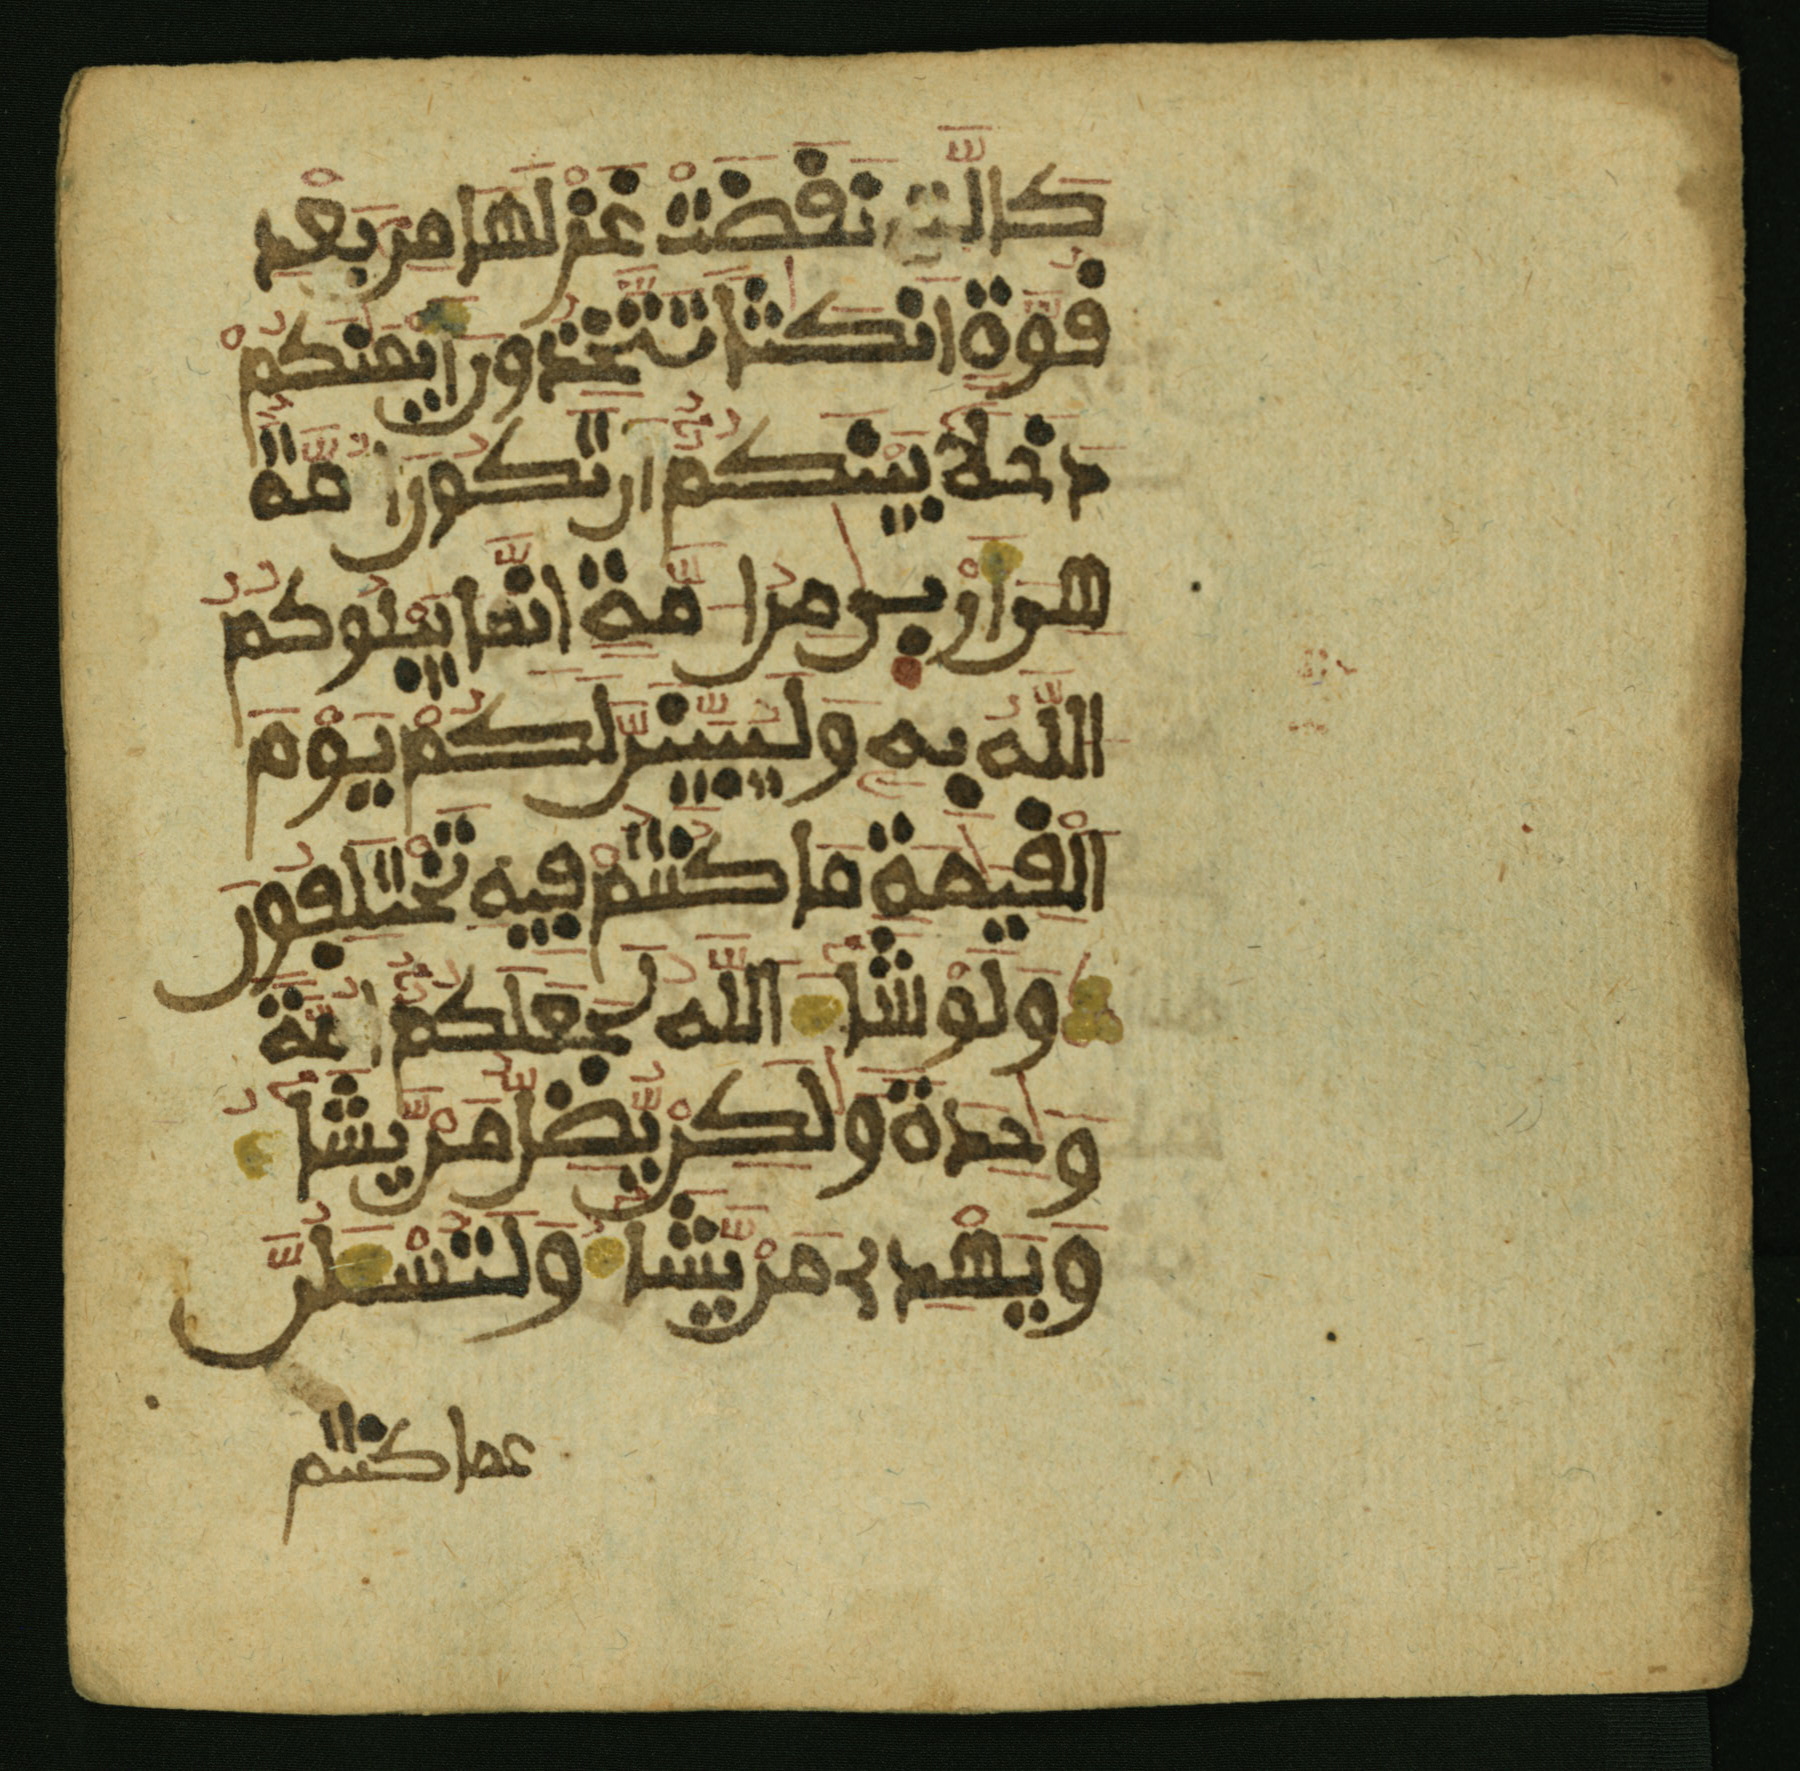 كَالَّتِي نَقَضَتْ غَزْلَهَا مِن بَعْدِ
قُوَّةٍ اَنكَٰثًا تَتَّخِذُونَ أَيْمَٰنَكُمْ
دَخَلًا بَيْنَكُمُ أَن تَكُونَ أُمَّةٌ
هِيَ أَرْبَىٰ مِنُ امَّةٍ اِنَّمَا يَبْلُوكُمُ
اللَّهُ بِهِ وَلَيُبَيِّنَنَّ لَكُمْ يَوْمَ
الْقِيَٰمَةِ مَا كُنتُمْ فِيهِ تَخْتَلِفُونَ
وَلَوْ شَاءَ اللَّهُ لَجَعَلَكُمُ أُمَّةً
وَٰحِدَةً وَلَٰكِنْ يُّضِلُّ مَنْ يَّشَاءُ
وَيَهْدِي مَنْ يَّشَاءُ وَلَتُسْـَٔلُنَّ
عما كنتم